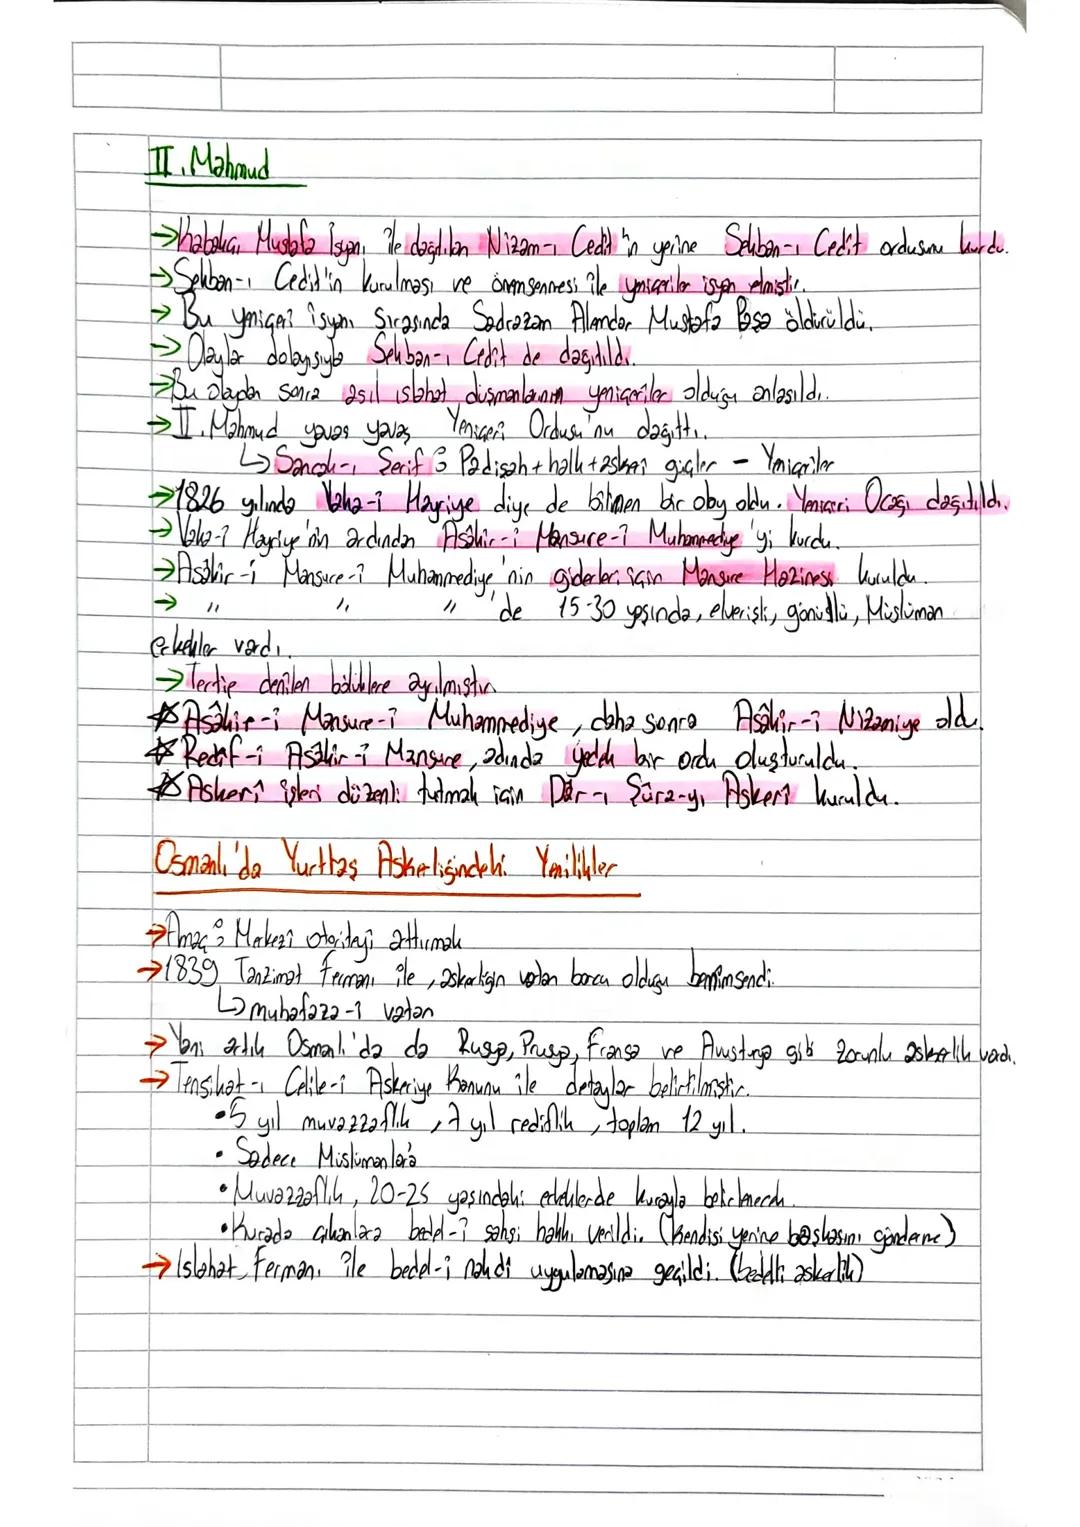 II. Mahmud
→Kabakçı Mustafa İsyanı ile dağıtılan Nizam-ı Cedit'in yerine Sekban-ı Cedit ordusunu kurdu.
→Sekban-ı Cedit'in kurulması ve önemsenmesi ile yeniçeriler isyan etmiştir.
→ Bu yeniçeri isyanı sırasında Sadrazam Alemdar Mustafa Paşa öldürüldü.
→ Olaylar dolayısıyla Sekban-ı Cedit de dağıtıldı.
→Bu olaydan sonra asıl ıslahat düşmanlarının yeniçeriler olduğu anlaşıldı.
→II. Mahmud yavaş yavaş Yeniçeri Ordusu'nu dağıttı.
↳Sancak-ı Şerif : Padişah + halk + askeri güçler - Yeniçeriler
→1826 yılında Vaka-i Hayriye diye de bilinen bir olay oldu. Yeniçeri Ocağı dağıtıldı.
→ Vaka-i Hayriye'nin ardından Asâkir-i Mansure-i Muhammediye'yi kurdu.
→Asâkir-i Mansure-i Muhammediye'nin giderleri için Mansure Hazinesi kuruldu.
→ " " " 'de 15-30 yaşında, elverişli, gönüllü, Müslüman
erkekler vardı.
→Tertip denilen bölüklere ayrılmıştır.
☆Asâkir-i Mansure-i Muhammediye, daha sonra Asâkir-i Nizamiye oldu.
☆ Redif-i Asâkir-i Mansure, adında yedek bir ordu oluşturuldu.
☆Askerî işleri düzenli tutmak için Dâr-ı Şûra-yı Askerî kuruldu.
Osmanlı'da Yurttaş Askerliğindeki Yenilikler
→Amaç : Merkezî otoriteyi arttırmak
→1839 Tanzimat Fermanı ile, askerliğin vatan borcu olduğu benimsendi.
↳muhafaza-i vatan
→ Yani artık Osmanlı'da da Rusya, Prusya, Fransa ve Avusturya gibi zorunlu askerlik vardı.
→ Tensikat-ı Celile-i Askeriye Kanunu ile detaylar belirtilmiştir.
•5 yıl muvazzaflık, 7 yıl rediflik, toplam 12 yıl.
• Sadece Müslümanlara
•Muvazzaflık, 20-25 yaşındaki erkeklerde kurayla belirlenecek.
•Kurada çıkanlara bedel-i şahsi hakkı verildi. (Kendisi yerine başkasını gönderme)
→ Islahat Fermanı ile bedel-i nakdi uygulamasına geçildi. (bedelli askerlik)